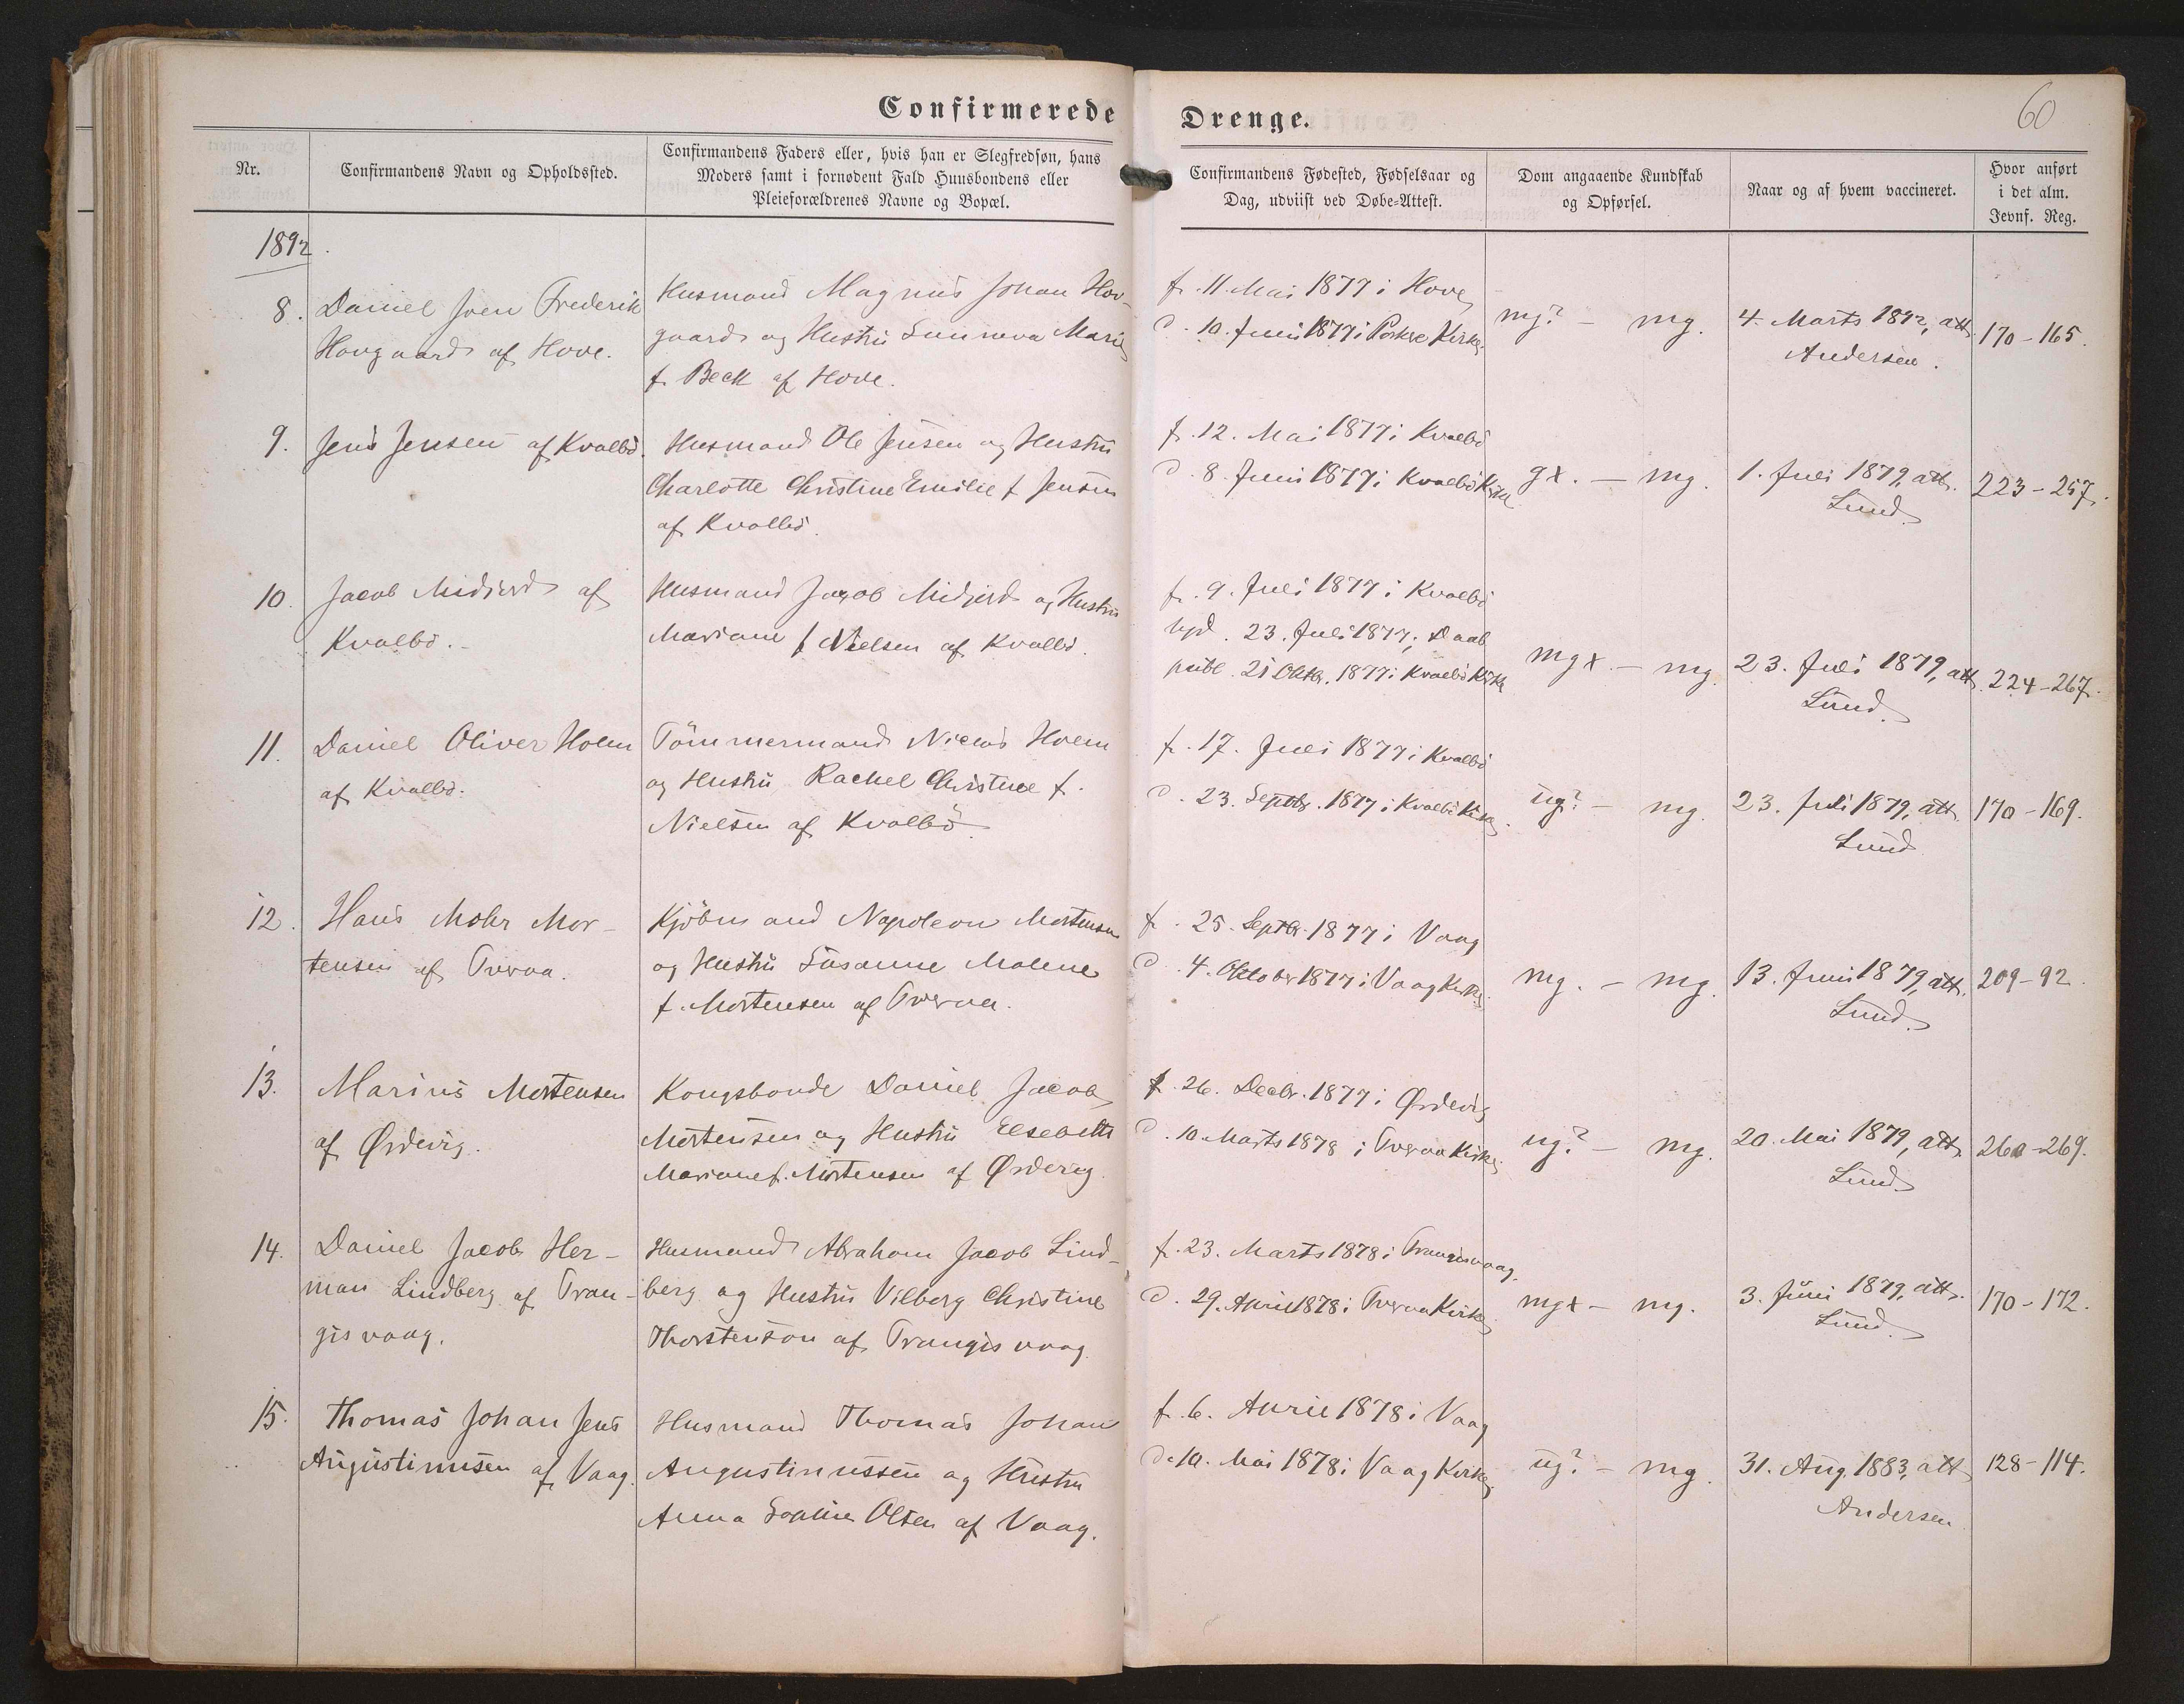 Confirmerede Drenge.
60
Nr.
Confirmandens Navn og Opholdssted.
Confirmandens Faders eller, hvis han er Slegfredsøn, hans
Moders samt i fornødent Fald Huusbondens eller
Pleieforældrenes Navne og Bopæl.
Confirmandens Fødested, Fødselsaar og
Dag, udviist ved Døbe-Attest.
Dom angaaende Kundskab
og Opførsel.
Naar og af hvem vaccineret.
Hvor anført
i det alm.
Jevnf. Reg.
1892.
8.
Daniel Sven Frederik
Hovgaard af Hove.
Husmand Magnus Johan Hov-
gaard og Hustru Sunneva Marie
f. Beck af Hove.
f. 11. Mai 1877 i Hove
d. 10. Juni 1877 i Porkere Kirke.
mg? – mg.
4. Marts 1892, att.
Andersen.
170-165.
9.
Jens Jensen af Kvalbö.
Husmand Ole Jensen og Hustru
Charlotte Christine Emilie f Jensen
af Kvalbö.
f. 12. Mai 1877 i Kvalbö
d. 8. Juni 1877 i Kvalbö Kirke
gx. – mg.
1. Juli 1879, att.
Lund.
223-257.
10.
Jacob Midjord af
Kvalbö.
Husmand Jacob Midjord og Hustru
Mariane f Nielsen af Kvalbö.
f. 9. Juli 1877 i Kvalbö
hjd. 23. Juli 1877; Daab
publ. 21 Oktbr. 1877 i Kvalbö Kirke
mgx. – mg.
23. Juli 1879, att.
Lund.
224-267.
11.
Daniel Oliver Holm
af Kvalbö.
Tömmermand Niclas Holm
og Hustru Rachel Christine f.
Nielsen af Kvalbö.
f. 17. Juli 1877 i Kvalbö
d. 23. Septbr. 1877 i Kvalbö Kirke.
ug? – mg.
23. Juli 1879, att.
Lund
170-169.
12.
Hans Mohr Mor-
tensen af Tveraa.
Kjöbmand Napoleon Mortensen
og Hustru Susanne Malene
f. Mortensen af Tveraa.
f. 25. Septbr. 1877 i Vaag
d. 4. Oktober 1877 i Vaag Kirke.
mg. – mg.
13. Juni 1879, att.
Lund.
209-92.
13.
Marius Mortensen
af Ørdevig.
Kongsbonde Daniel Jacob
Mortensen og Hustru Elsebeth
Mariane f. Mortensen af Ørdevig.
f. 26. Decbr. 1877 i Ørdevig
d. 10. Marts 1878 i Tveraa Kirke.
ug? – mg.
20. Mai 1879, att.
Lund
260-269.
14.
Daniel Jacob Her-
man Lindberg af Tran-
gisvaag.
Husmand Abraham Jacob Lind-
berg og Hustru Vilborg Christine
Thorstenson af Trangisvaag.
f. 23. Marts 1878 i Trangisvaag.
d. 29. April 1878 i Tveraa Kirke
mgx – mg.
3. Juni 1879, att.
Lund.
170-172.
15.
Thomas Johan Jens
Augustinusen af Vaag.
Husmand Thomas Johan
Augustinussen og Hustru
Anna Sophie Olsen af Vaag.
f. 6. April 1878 i Vaag
d. 10. Mai 1878 i Vaag Kirke.
ug? – mg.
31. Aug. 1883, att
Andersen
128-114.